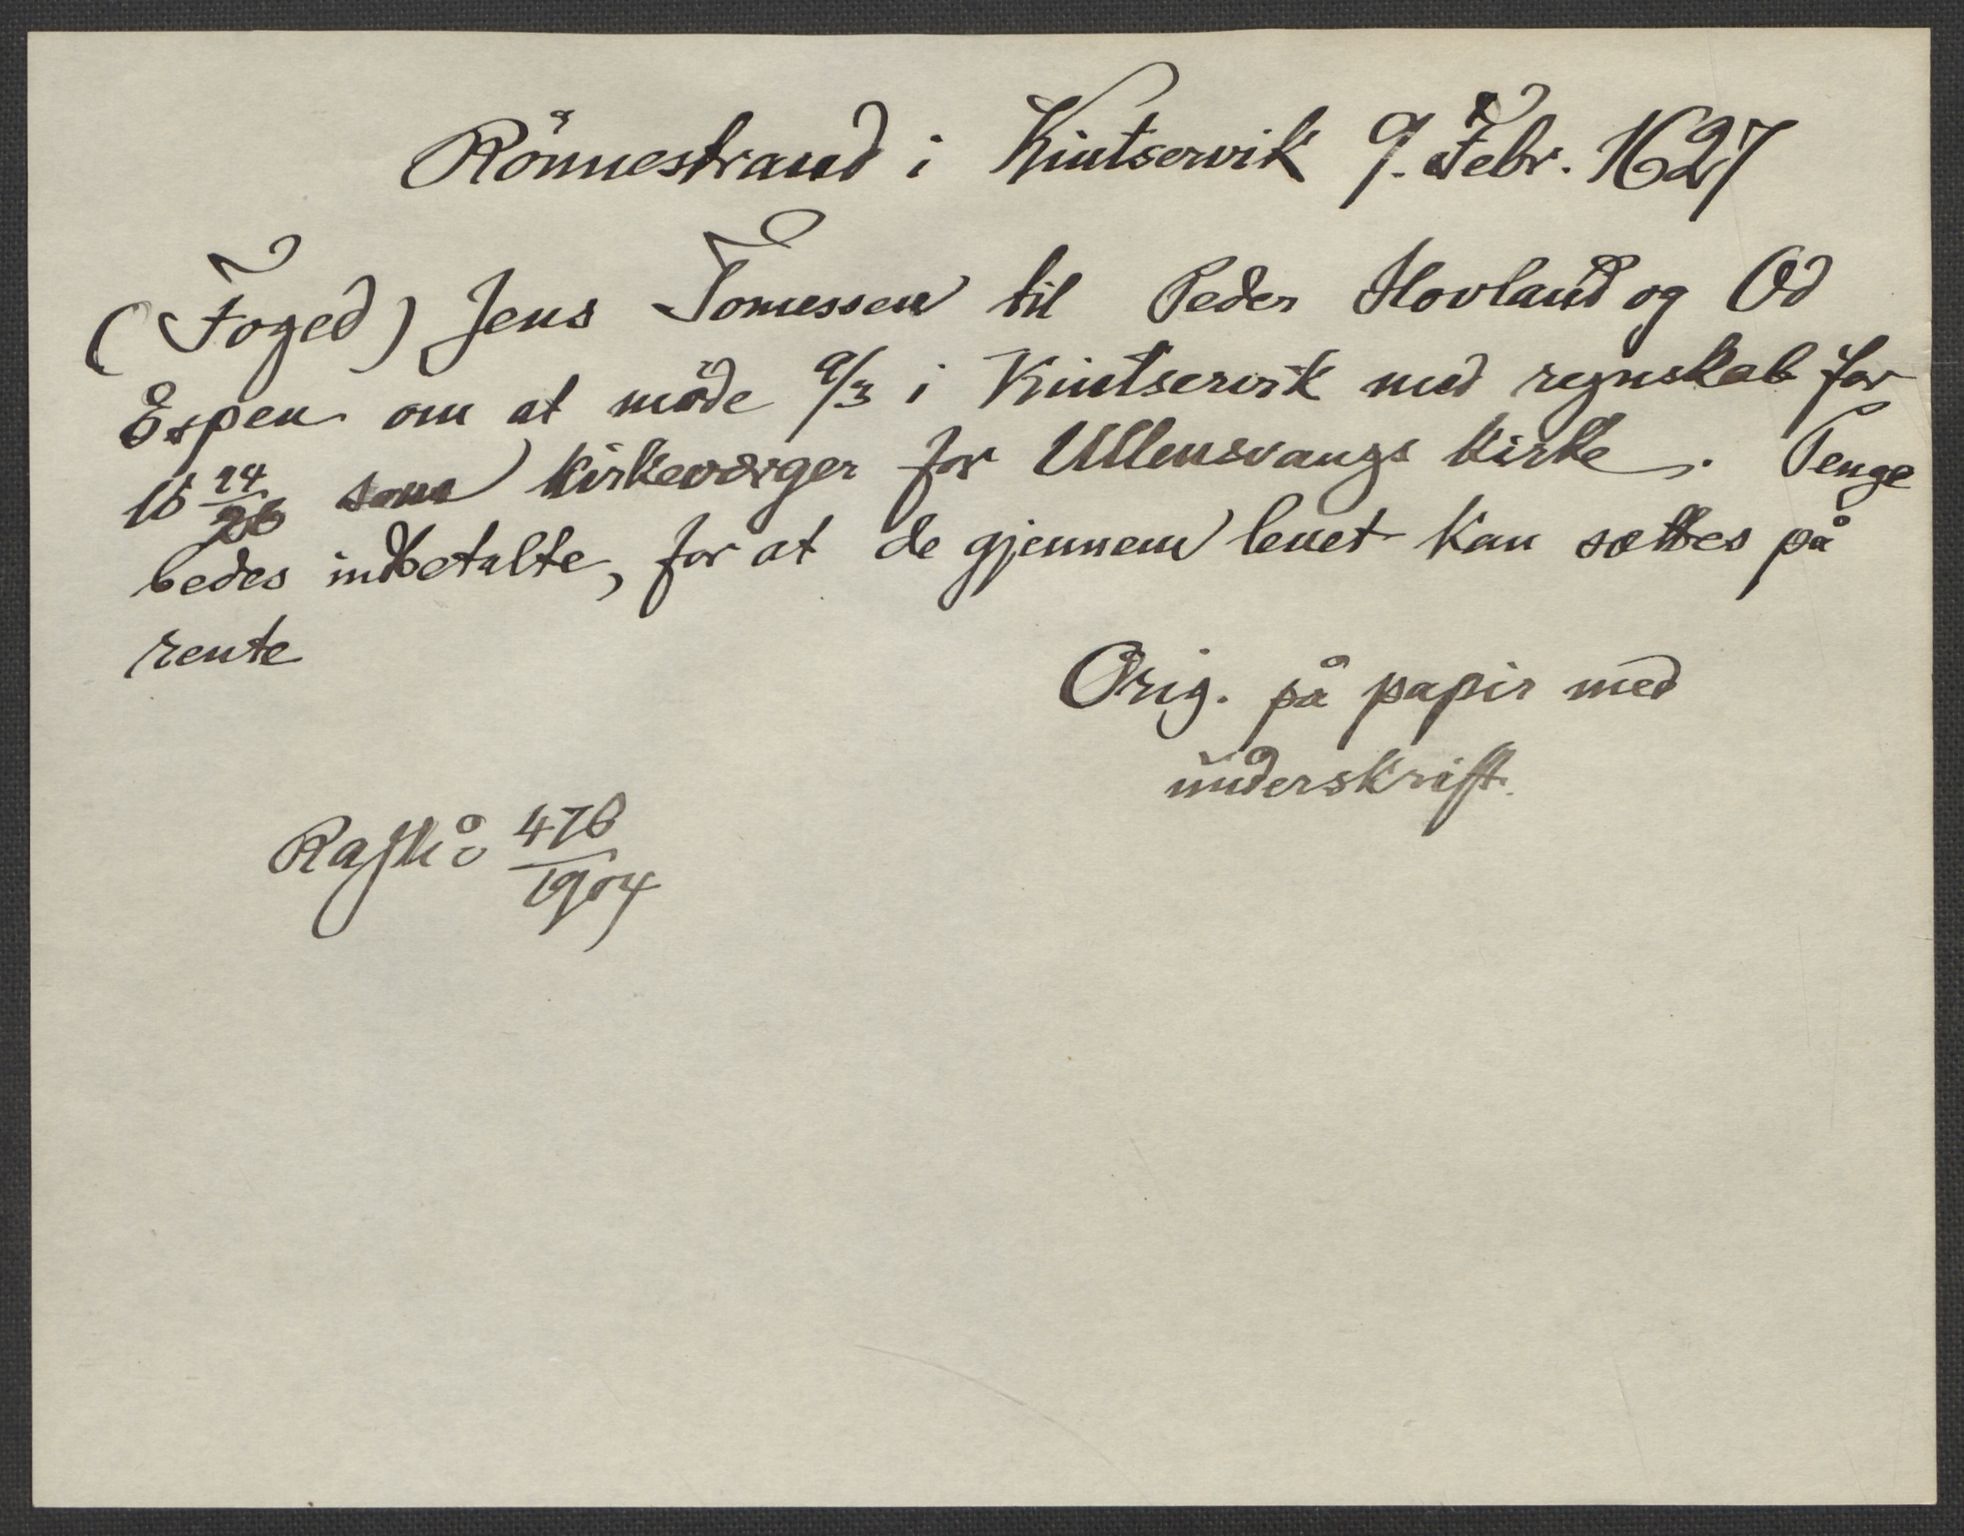 Rönnestrand i Kintservik 9. Febr. 1627
(Foged) Jens Tomessen til Peder Hovland og Od
Espen om at möde 9/3 i Kintservik med regnskab for
16 24/26 som kirkeværger for Ullensvangs kirke. Penge
bedes indbetalte, for at de gjennem lenet kan sættes på
rente
Orig. på papir med
underskrift.
476/1904